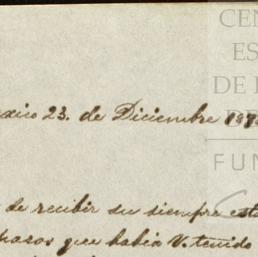 CEN
ES
DE
D
FUN
xico 23. de Diciembre
de recibir su siempre
que habia V. tenido